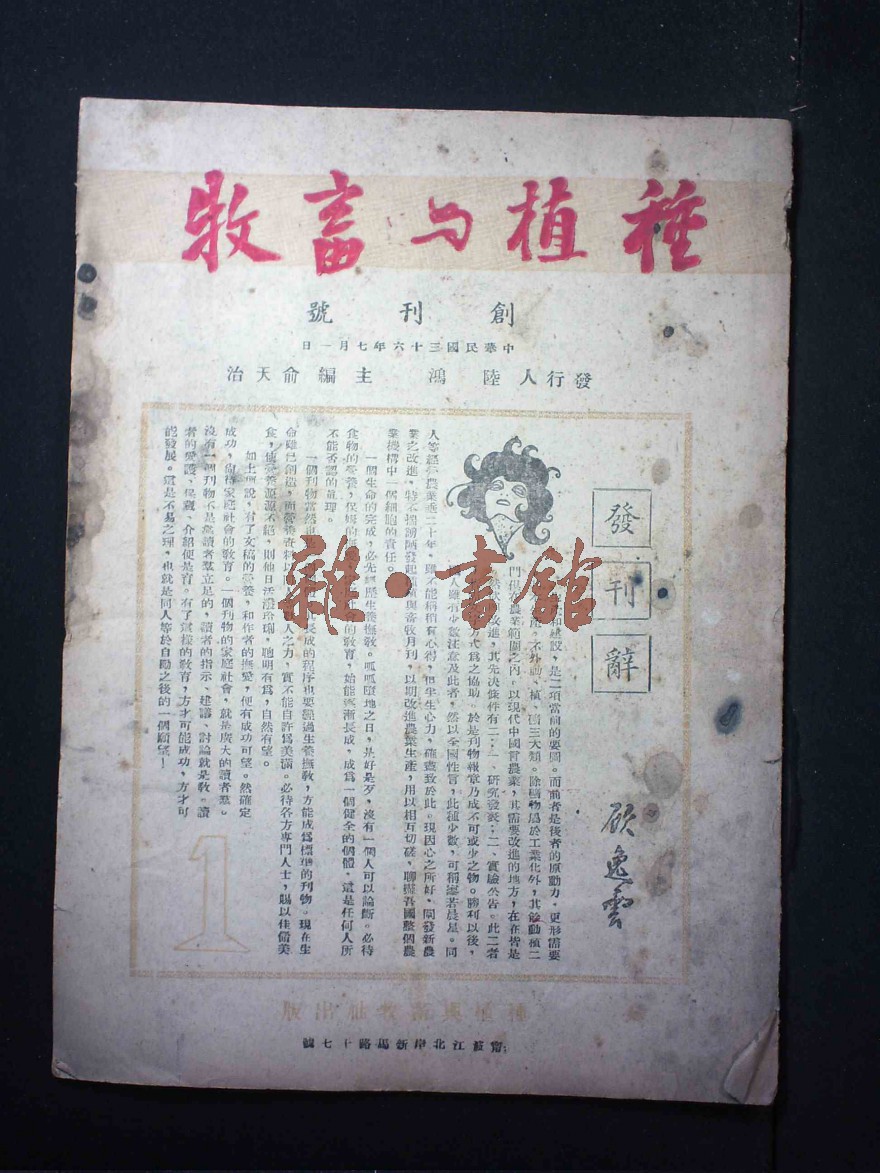 種植与畜牧
創刊號
中華民國三十六年七月一日
發行人 陸鴻 主編 俞天治
發刊辭
顧逸雲
和建設，是二項當前的要圖。而前者是後者的原動力。更形需要
不外動、植、礦三大類。除礦物屬於工業化外，其餘動植二
門佔在農業範圍之內。以現代中國言農業，其需要改進的地方，在在皆是
改進，其先決條件有二：一、研究發表；二、實驗公告。此二者
方式為之協助。於是刊物報章乃成不可或少之物。勝利以後，
人雖有少數注意及此者，然以全國性言，此種少數，可稱寥若晨星。同
人等經營農業垂二十年，雖不能稱稍有心得，但半生心力，確盡致於此。現因心之所好，開發新農
業之改進，特不揣謭陋發起種植與畜牧月刊，以期改進農業生產，用以相互切磋，聊盡吾國整個農
業機構中一個細胞的責任。
一個生命的完成，必先經歷生養撫敎。呱呱墮地之日，是好是歹，沒有一個人可以論斷。必待
食物的營養，保姆的撫愛，社會的敎育，始能逐漸長成，成為一個健全的個體，這是任何人所
不能否認的真理。
一個刊物當然也是，其長成的程序也要經過生養撫敎，方能成爲標準的刊物。現在生
命雖已創造，而營養資料以同人之力，實不能自許爲美滿。必待各方專門人士，賜以佳餚美
食，使營養源源不絕，則他日活潑玲瓏，聰明有爲，自然有望。
如上所說，有了文稿的營養，和作者的撫愛，便有成功可望。然確定
成功，尙待家庭社會的敎育。一個刊物的家庭社會，就是廣大的讀者羣。
沒有一個刊物不是靠讀者羣立足的，讀者的指示、建議、討論就是敎。讀
者的愛護、保寶、介紹便是育。有了這樣的敎育，方才可能成功，方才可
能發展。這是不易之理，也就是同人等於自勵之後的一個願望！
1
種植與畜牧社出版
甯波江北岸新馬路十七號
雜·書館